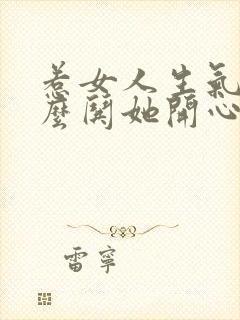 惹女人生氣
麼鬨她開心
雷寧